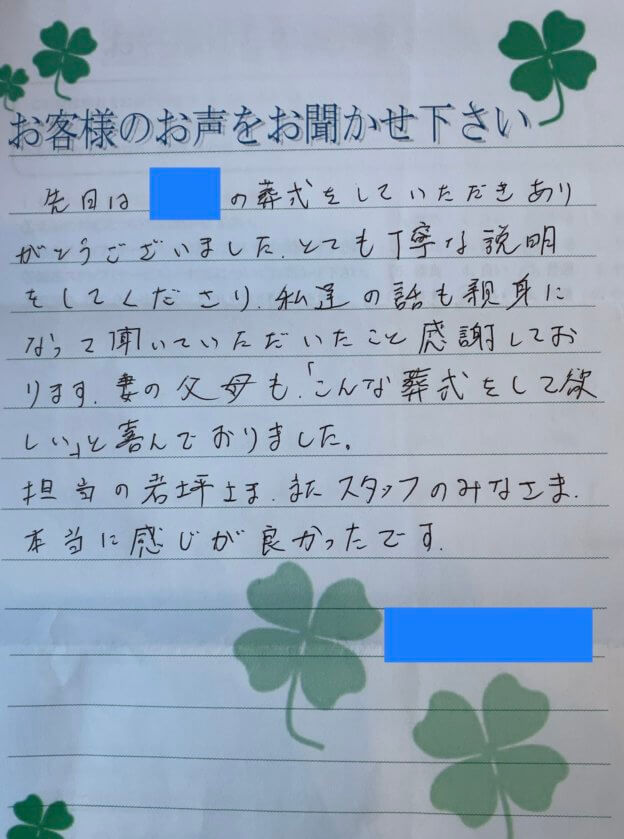 お客様のお声をお聞かせ下さい
先日は の葬式をしていただきあり
がとうございました.とても丁寧な説明
をしてくださり.私達の話も親身に
なって聞いていただいたこと感謝してお
ります.妻の父母も.「こんな葬式をして欲
しい」と喜んでおりました。
担当の君坪さま.またスタッフのみなさま.
本当に感じが良かったです.